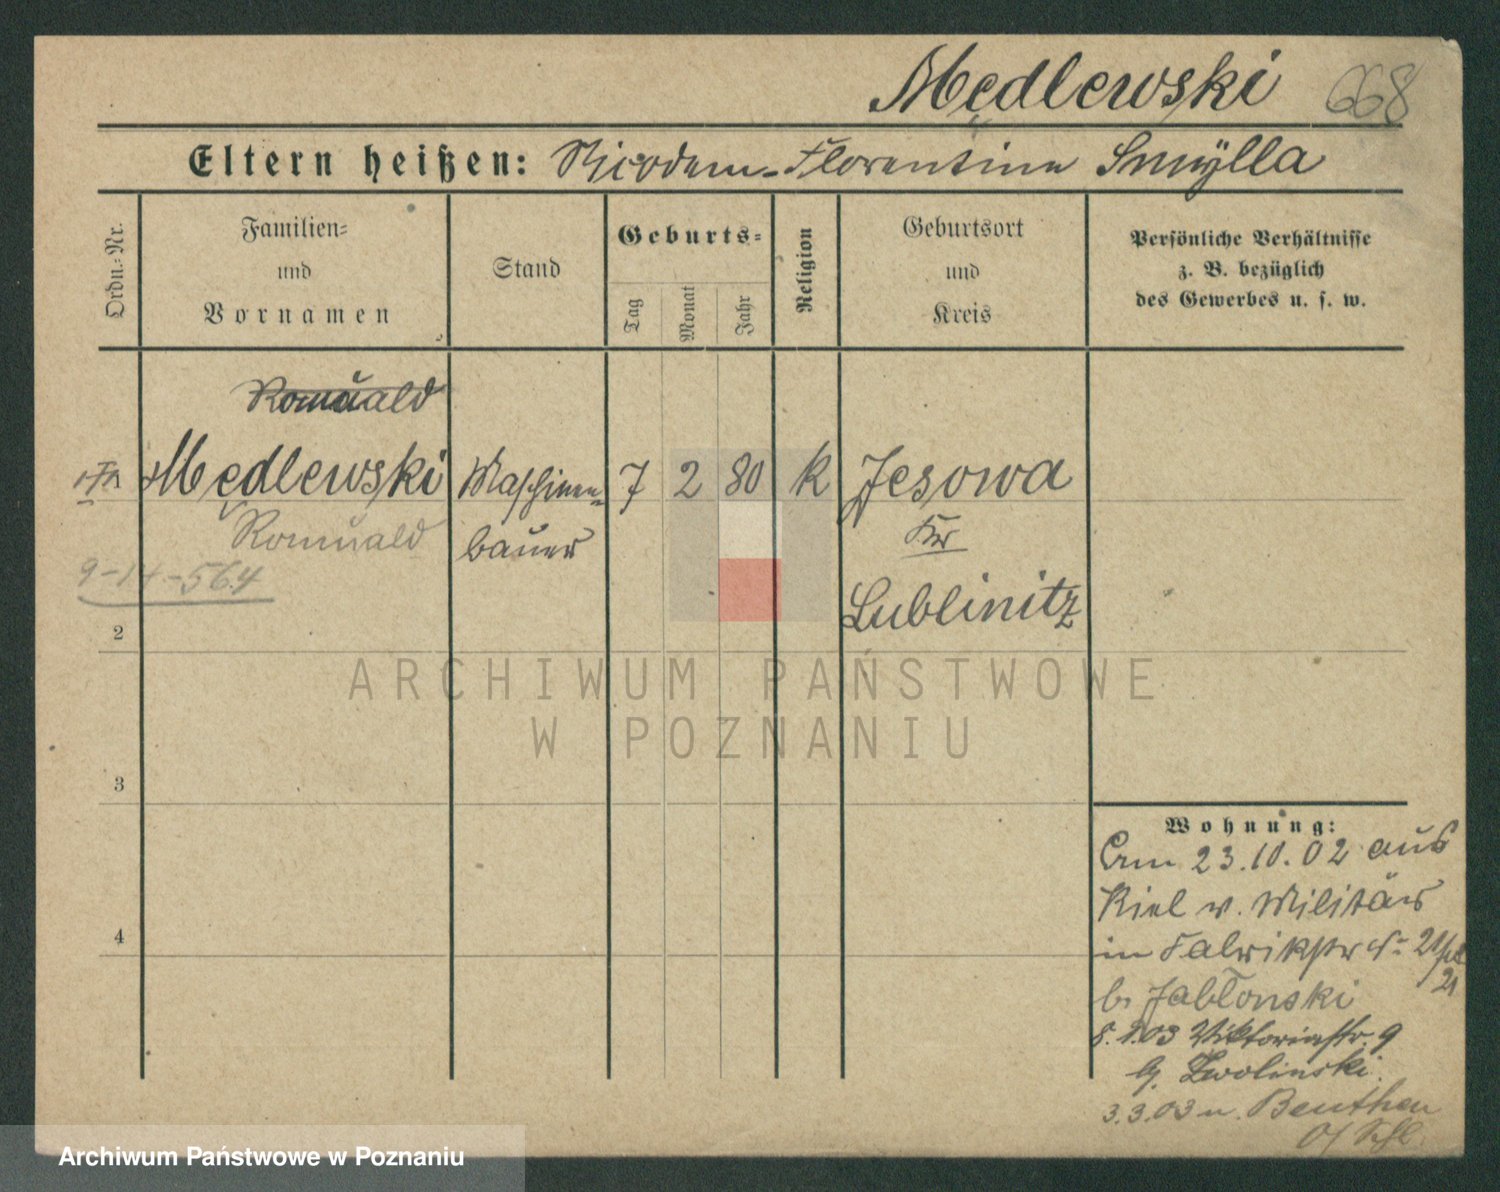 Mędlewski 668
Eltern heißen: Nicodem - Florentine Smylla
Ordn.-Nr.
Familien-
und
Vornamen
Stand
Geburts-
Tag
Monat
Jahr
Religion
Geburtsort
und
Kreis
Persönliche Verhältnisse
z. B. bezüglich
des Gewerbes u. s. w.
Romuald
Mędlewski Maschinen- 7 2 80 k Jesowa
Romuald bauer Kr
Lublinitz
2
3
4
Wohnung:
Am 23.10.02 aus
Kiel v. Militär
in Fabrikstr
b. Jabłonski
03 Viktoriastr. 9
b. Zwolinski
3.3.03 n. Beuthen
O/Schl
ARCHIWUM PAŃSTWOWE
W POZNANIU
Archiwum Państwowe w Poznaniu